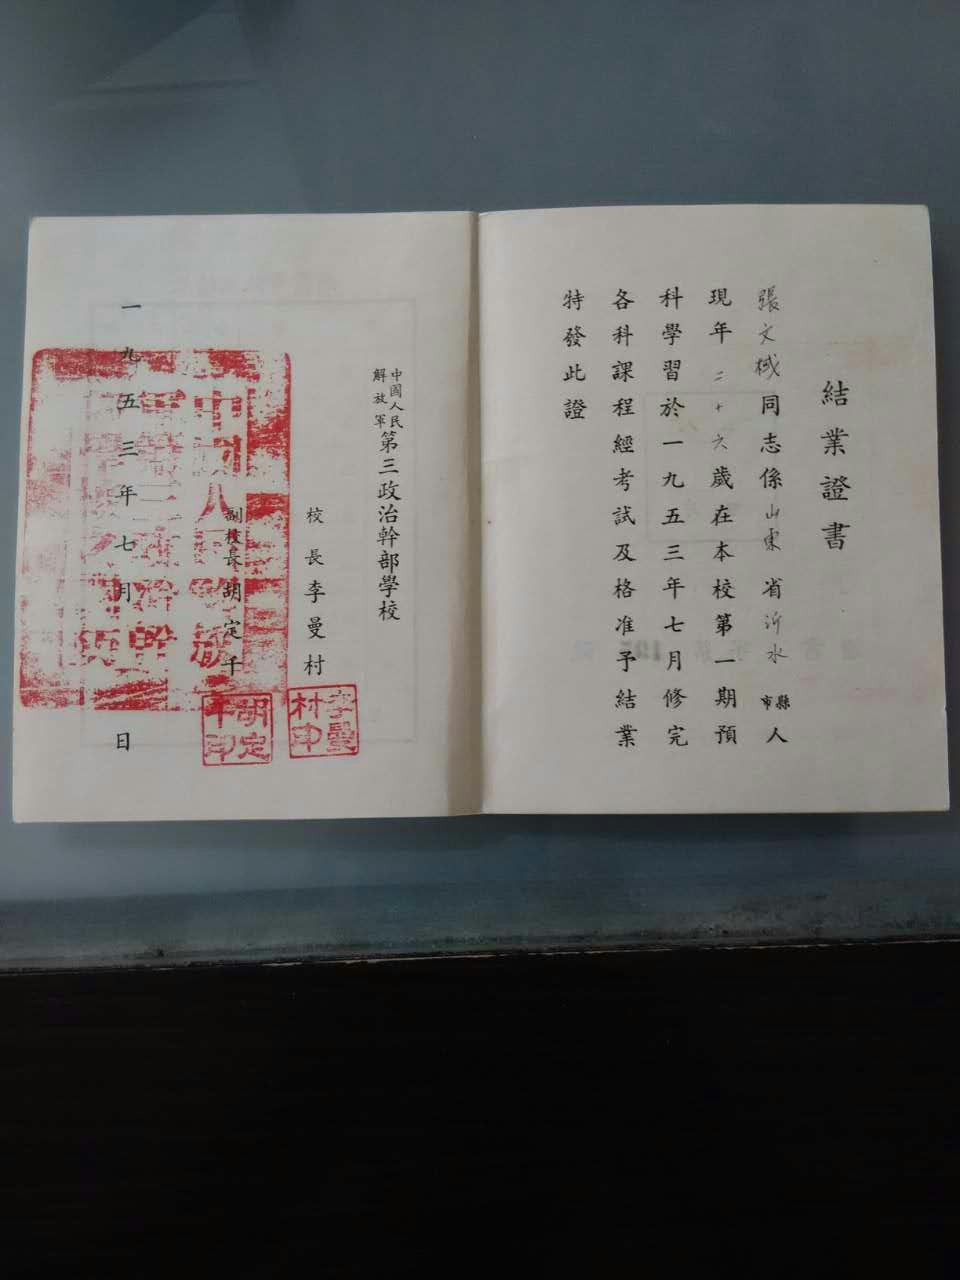 結業證書
張文棫同志係山東省沂水縣市人
現年二十六歲在本校第一期預
科學習於一九五三年七月修完
各科課程經考試及格准予結業
特發此證
中國人民解放軍第三政治幹部學校
校長李曼村
副校長胡定千
李曼村印
胡定千印
一九五三年七月 日